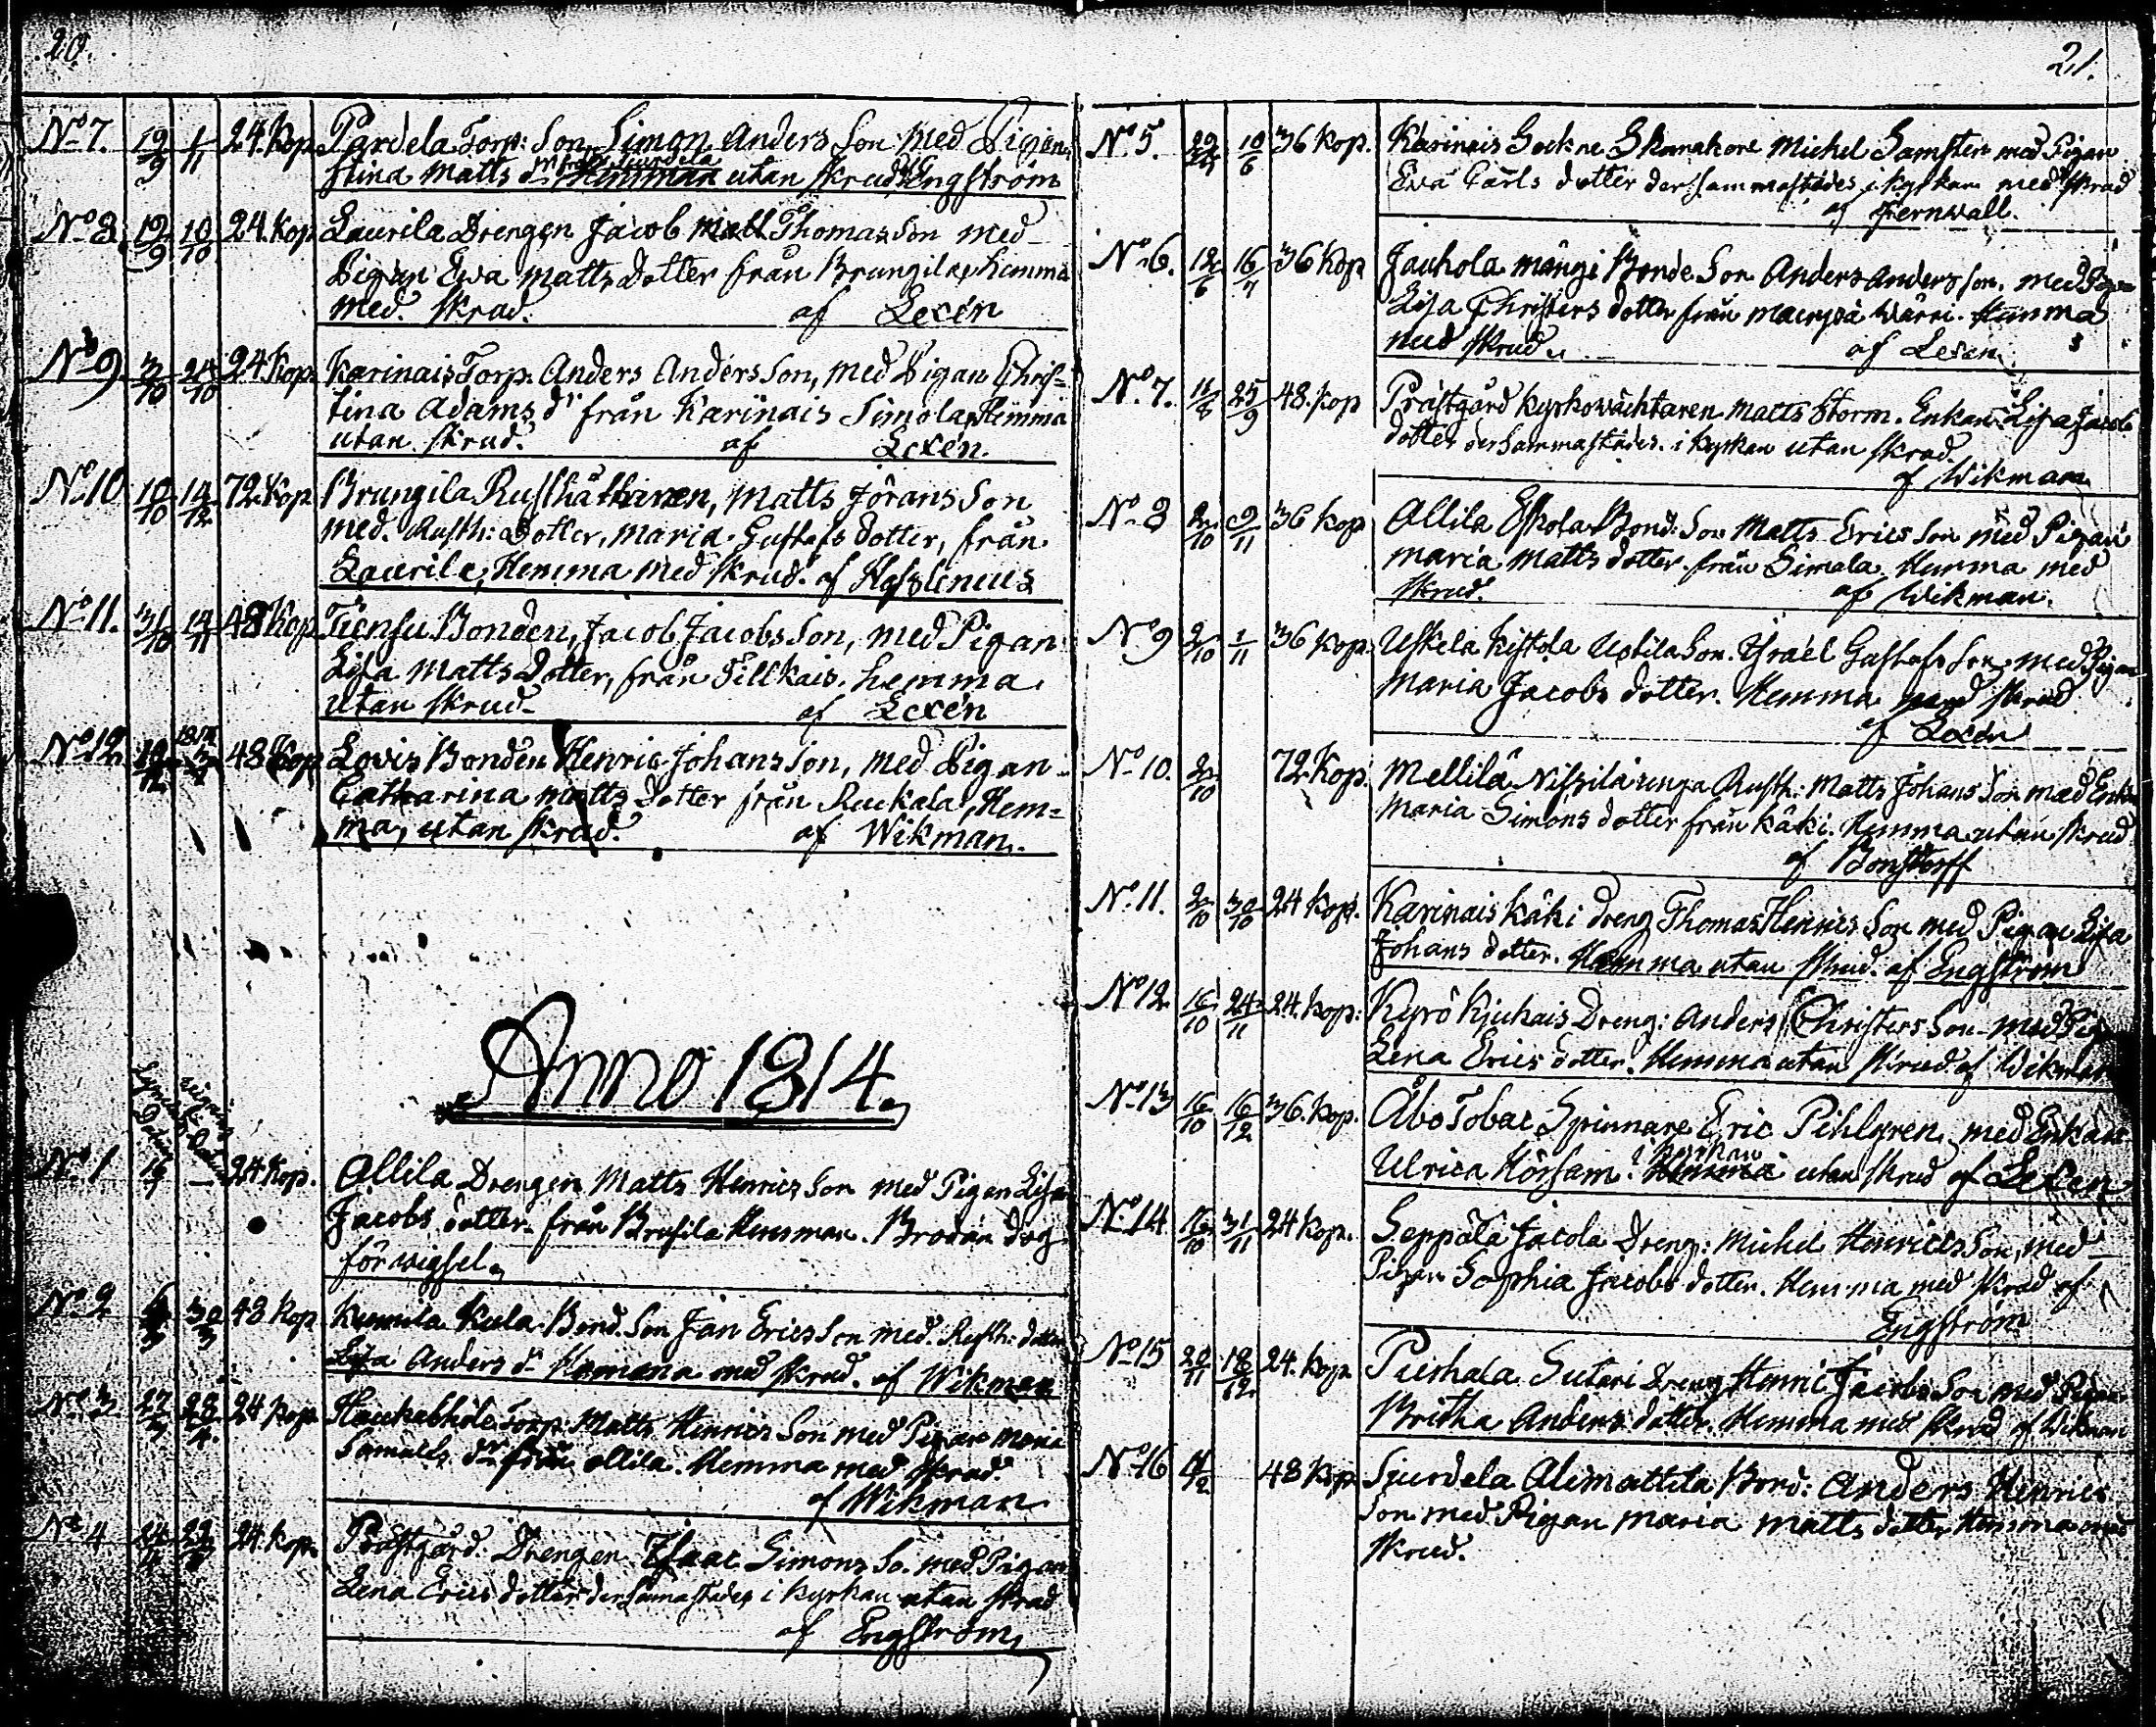 20.
No 7. 19/9 1/11 24. Kop. Pardela Torp: Son Simon Anders Son med Pigan
från Juvdela
Stina Matts dr Hemman utan skrud af Engström
No 8. 19/9 10/10 24. Kop Laurila Drengen Jacob Matt Thomas Son med
Pigan Ewa Matts Dotter från Brungila, hemma
med skrud. af Lexén
No 9 3/10 24/10 24 Kop. Karinais Torp. Anders Anders Son, med Pigan Chris=
tina Adams dr från Karinais Simola, Hemma
utan skrud. af Lexén.
No 10 10/10 14/12 72. Kop Brungila Rusthållaren, Matts Jörans Son
med. Rusth: Dotter, Maria Gustafs dotter, från
Laurila, Hemma med skrud. af Hasslenius
No 11. 31/10 14/11 48 Kop Tiensu Bonden, Jacob Jacobs Son, med Pigan
Lisa Matts Dotter, från Tillkais. hemma
utan skrud af Lexén
No 12. 1814 48 Kop Lovis Bonden Henric Johans Son, med Pigan
Catharina Matts Dotter från Ruckala, Hem=
ma, utan skrud. af Wikman.
Anno 1814.
No 1 24 Kop. Allila Drengen Matts Henrics Son med Pigan Lisa
Jacobs dotter från Brusila Hemman. Bruden dog
för wigsel.
No 2 30/3 48 Kop Kumila Kula Bond. Son Jan Erics Son med. Rusth: dotter
Lisa Anders dr Hemma med skrud. af Wikman
No 3 27/3 28/4. 24 Kop. Torp: Matts Henrics Son med Pigan Maria
Samuels dr från Allila. Hemma med skrud.
af Wikman
No 4 24/4 24. Kop. Prästgård. Drengen Isaac Simons So. med Pigan
Lena Erics dotter dersamastädes i kyrkan utan skrud
af Engström,
21.
No 5. 10/6 36 Kop. Karinais Sockne Skomakare Michel Samsten med Pigan
Eva Carls dotter dersammastädes i kyrkan med skrud
af Fernwall.
No 6. 12/6 16/7 36 Kop Jauhola Mängi Bonde Son Anders Anders son. med Pigan
Lisa Christers dotter från Wärri. Hemma
med skrud. af Lexen.
No 7. 11/8 25/9 48. Kop Prästgård Kyrkowächtaren Matts Storm. Enkan Lisa Jacob
dotter dersammastädes. i Kyrkan utan skrud.
af Wikman
No 8 2/10 9/11 36 Kop Allila Eskola Bond: Son Matts Erics Son med Pigan
Maria Matts dotter från Simala Hemma med
skrud. af Wikman.
No 9 2/10 1/11 36 Kop. Uskela Kistola Uotila Son. Israël Gustafs Son, med Pigan
Maria Jacobs dotter. Hemma med skrud
af Lexén
No 10. 2/10 72. Kop. Mellilä Rusth: Matts Johans Son med Enkan
Maria Simons dotter från Käki. Hemma utan skrud
af Bonsdorff
No 11. 2/10 30/10 24 Kop. Karinais Käki Dreng Thomas Henrics Son med Pigan Lisa
Johans dotter. Hemma utan skrud. af Engström
No 12 16/10 24/11 24. Kop: Kyrö Kjuhais Dreng: Anders Christers Son med Pigan
Lena Erics dotter. Hemma utan skrud af Wikman
No 13 16/10 16/12 36. Kop. Åbo Tobac Spinnare Eric Pihlgren, med Enkan
i kyrkan
Ulrica Hörsam. Hemma utan skrud af Lexen
No 14 16/10 31/11 24 Kop. Seppälä Jacola Dreng: Michel Henrics Son, med
Pigan Sophia Jacobs dotter. Hemma med skrud af
Engström
No 15 20/11 18/12 24. Kop. Puirhala Sutari Dreng Henric Jacobs Son med Pigan
Britha Anders dotter. Hemma med skrud af Wikman
No 16 48 Kop Juvdela Alimattila Bond: Anders Henrics
Son med Pigan Maria Matts dotter Hemma med
skrud.